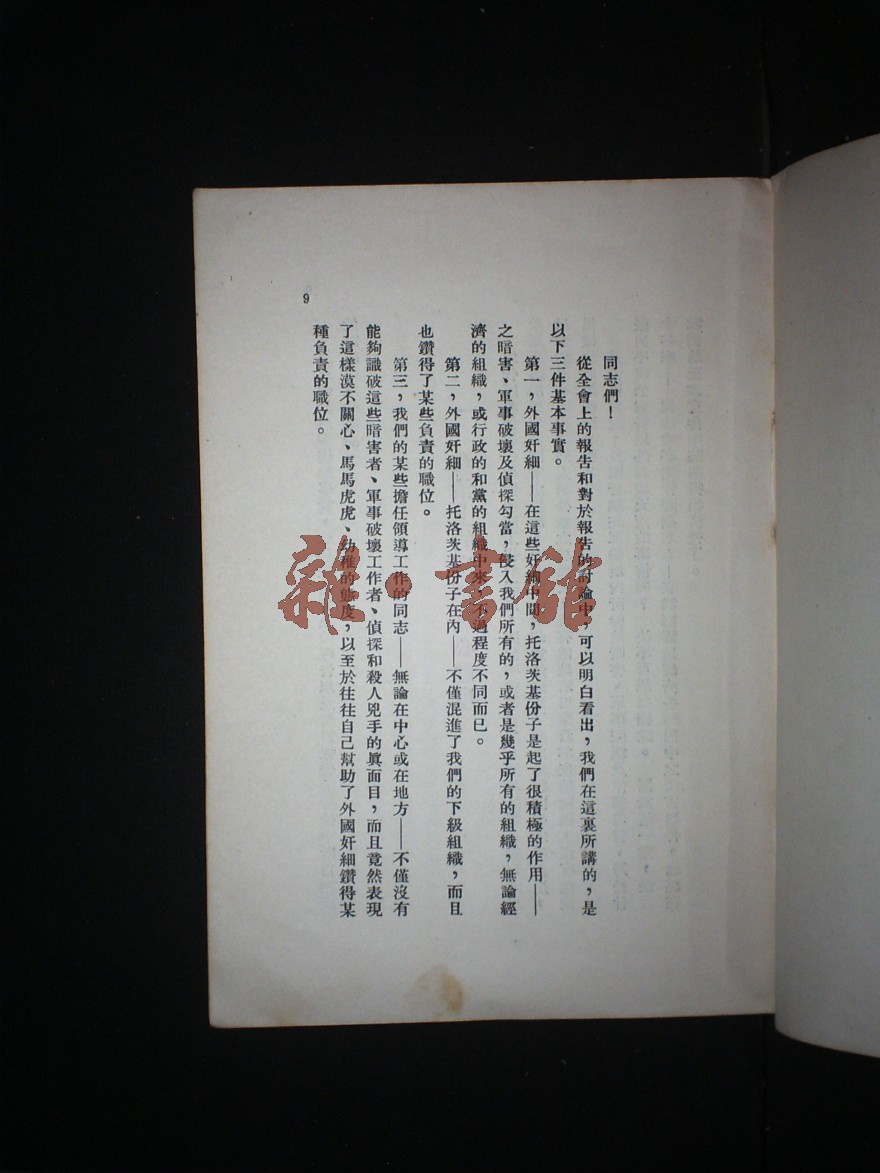 同志們！
從全會上的報吿和對於報吿的討論中，可以明白看出，我們在這裏所講的，是
以下三件基本事實。
第一，外國奸細——在這些奸細中間，托洛茨基份子是起了很積極的作用——
之暗害、軍事破壞及偵探勾當，侵入我們所有的，或者是幾乎所有的組織，無論經
濟的組織，或行政的和黨的組織中來，不過程度不同而已。
第二，外國奸細——托洛茨基份子在內——不僅混進了我們的下級組織，而且
也鑽得了某些負責的職位。
第三，我們的某些擔任領導工作的同志——無論在中心或在地方——不僅沒有
能夠識破這些暗害者、軍事破壞工作者、偵探和殺人兇手的眞面目，而且竟然表現
了這樣漠不關心、馬馬虎虎、幼稚的態度，以至於往往自己幫助了外國奸細鑽得某
種負責的職位。
9
雜·書館